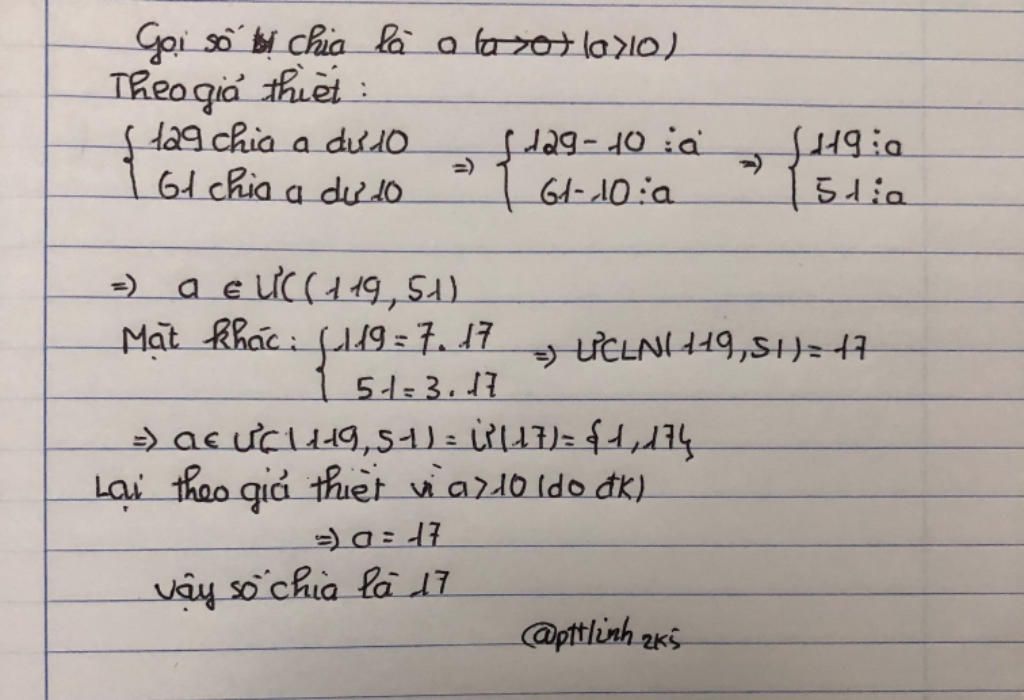 Gọi số chia là a (a>0) (a>10)
Theo giả thiết:
{129 chia a dư 10 => {129-10 ⋮ a => {119 ⋮ a
61 chia a dư 10 61-10 ⋮ a 51 ⋮ a
=> a ∈ ƯC(119, 51)
Mặt khác: {119 = 7.17 => ƯCLN(119,51) = 17
51 = 3.17
=> a ∈ ƯC(119,51) = Ư(17) = {1,17}
Lại theo giả thiết vì a>10 (do đk)
=> a = 17
Vậy số chia là 17
@pttlinh 2k5